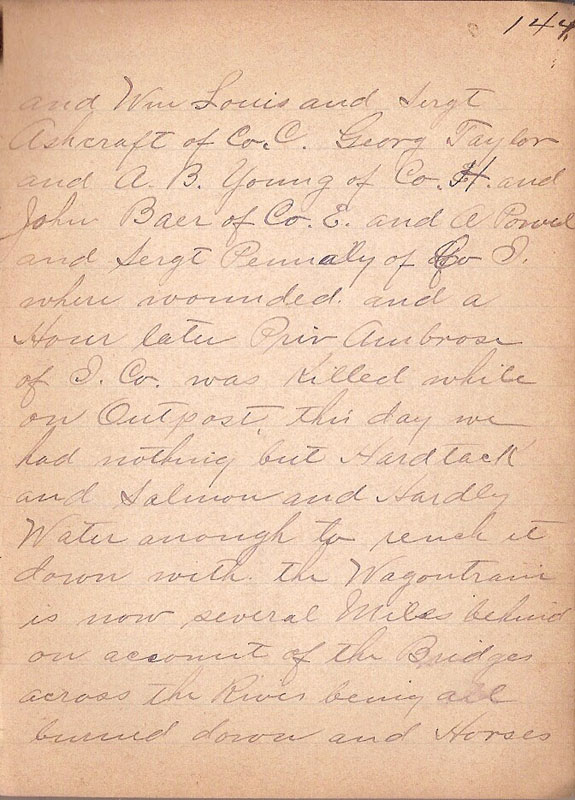 144
and Wm Louis and Sergt
Ashcraft of Co. C. Georg Taylor
and A. B. Young of Co. H. and
John Baer of Co. E. and A Powel
and Sergt Pennaly of Co I.
where wounded. and a
Hour later Priv Ambrose
of I. Co. was Killed while
on Outpost. this day we
had nothing but Hardtack
and Salmon and Hardly
Water anough to rench it
down with. the Wagontrain
is now several Miles behind
on account of the Bridges
across the River being all
burned down and Horses